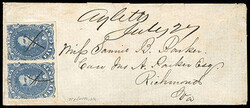 Ayletts
July 27
Miss Fannie B. Parker.
Care Jns A. Parker Esq
Richmond
Va